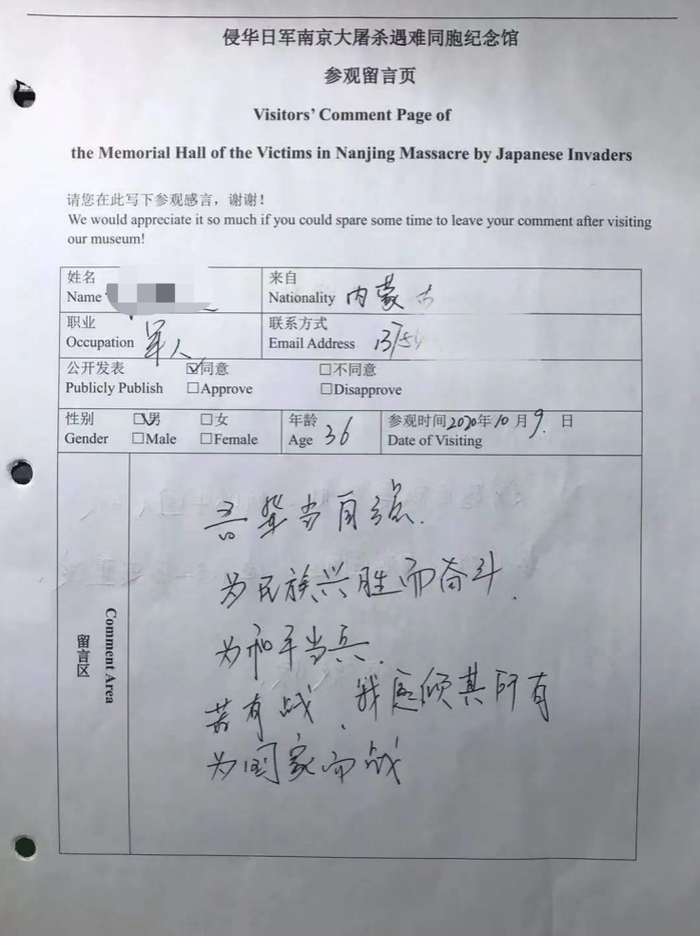 侵华日军南京大屠杀遇难同胞纪念馆
参观留言页
Visitors' Comment Page of
the Memorial Hall of the Victims in Nanjing Massacre by Japanese Invaders
请您在此写下参观感言，谢谢！
We would appreciate it so much if you could spare some time to leave your comment after visiting
our museum!
姓名
Name
来自
Nationality 内蒙古
职业
Occupation 军人
联系方式
Email Address 13754
公开发表 ☑同意 □不同意
Publicly Publish □Approve □Disapprove
性别 ☑男 □女
Gender □Male □Female
年龄
Age 36
参观时间2020年10月9日
Date of Visiting
留言区
Comment Area
吾辈当自强.
为民族兴胜而奋斗.
为和平当兵.
若有战、我愿倾其所有
为国家而战